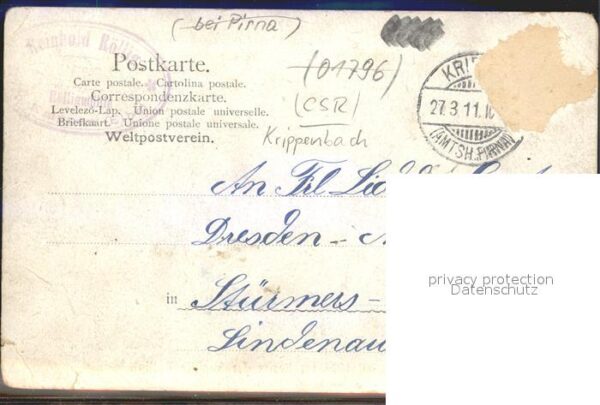 (bei Pirna)
Reinhold
Postkarte.
Carte postale. Cartolina postale.
Correspondenzkarte.
Levelező-Lap. Union postale universelle.
Briefkaart. Unione postale universale.
Weltpostverein.
(01796)
(CSR)
Krippenbach
KRIP
27.3.11.
(AMTSH.PIRNA)
An Frl
Dresden -
in Stürmers-
Lindenau
privacy protection
Datenschutz